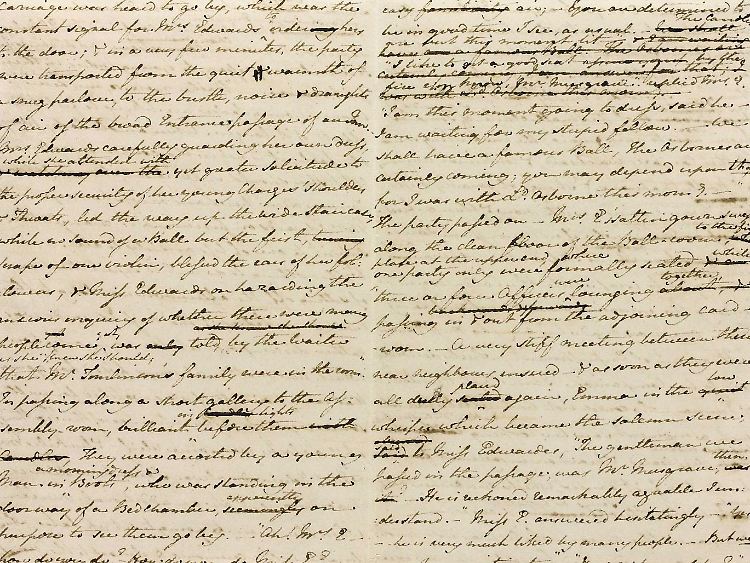 Carriage was heard to go by, which near the
constant signal for Mrs Edwards's ordering hers
to the door; & in a very few minutes, the party
were transported from the quiet & warmth of
a snug parlour, to the bustle, noise & draughts
of air of the broad Entrance passage of an Inn.
Mrs Edwards carefully guarding her own dress,
while she attended with
yet greater solicitude to
the proper security of her young Charges' Shoulders
& Throats, led the way up the wide staircase,
while no sound of a Ball but the first,
scrape of one violin, blessed the ears of her fol:
lowers, & Miss Edwards on hazarding the
anxious enquiry of whether there were many
people come yet was told by the Waiter
as she knew she should,
that Mr Tomlinson's family were in the room.
In passing along a short gallery to the as:
sembly room, brilliant in lights before them
They were accosted by a young
Man in a morning dress & Boots, who was standing in the
doorway of a Bedchamber, apparently on
purpose to see them go by. "Ah! Mrs E—
how do you do? How do you do Miss E.?
easy air; you are determined to
be in good time I see, as usual. The Candles
are but this moment lit
"I like to get a good seat by the
fire you know, Mr Musgrave." replied Mrs E.
"I am this moment going to dress, said he
I am waiting for my stupid fellow. We
shall have a famous Ball, The Osbornes are
certainly coming; you may depend upon that
for I was with Ld. Osborne this morng—"
The party passed on— Mrs E's sattin gown swept
along the clean floor of the Ball-room, to the fire
place at the upper end, where
one party only were formally seated, while
three or four Officers were lounging together,
passing in & out from the adjoining card
room. A very stiff meeting between these
near neighbours ensued & as soon as they were
all duely placed again, Emma in the low
whisper which became the solemn scene,
said to Miss Edwardes, "The gentleman we
passed in the passage, was Mr Musgrave, then
He is reckoned remarkably agreable I un:
derstand.—" Miss E. answered hesitatingly— "Yes
—he is very much liked by many people.— But we